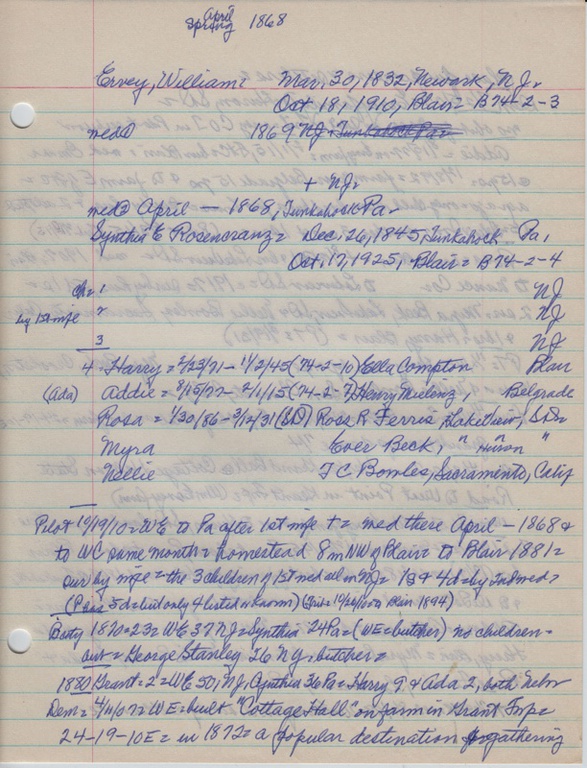 April
Spring 1868
Ervey, William = Mar, 30, 1832, Newark, N.J.
Oct 18, 1910, Blair = B74-2-3
med① 1869 NJ = Tunkahock Pa =
+ NJ =
med② April — 1868, Tunkahock Pa -
Synthia E Rosencranz = Dec, 26, 1845, Tunkahock Pa,
Oct, 17, 1925, Blair = B74-2-4
Ch = 1 NJ
by 1st wife 2 NJ
3 NJ
4 Harry = 2/23/71 - 11/2/45 (74-2-10) Ella Compton Blair
(Ada) Addie = 8/15/77 - 2/1/15 (74-2-7) Henry Mielenz, Belgrade
Rosa = 1/30/86 - 3/12/31 (SD) Ross R Ferris, Lakeview, SD =
Myra Ever Beck, " Huron "
Nellie F C Bowles, Sacramento, Calif
Pilot 10/19/10 = WE to Pa after 1st wife + = med there April - 1868 &
to WC same month = homestead 8 m NW of Blair = to Blair 1881 =
sur by wife = the 3 children of 1st med all in NJ = 1s & 4d = by 2nd med =
5 d = but only 4 listed
1870 = 23 = WE 37 NJ = Synthia 24 Pa = (WE = butcher) no children =
= George Stanley 26 NY, butcher =
1880 Grant = 2 = WE 50, NJ, Cynthia 36 Pa = Harry 9 & Ada 2, both Nebr
Dem = 4/11/07 = WE = built "Cottage Hall" on farm in Grant Twp =
24-19-10E = in 1872 = a popular destination for gathering